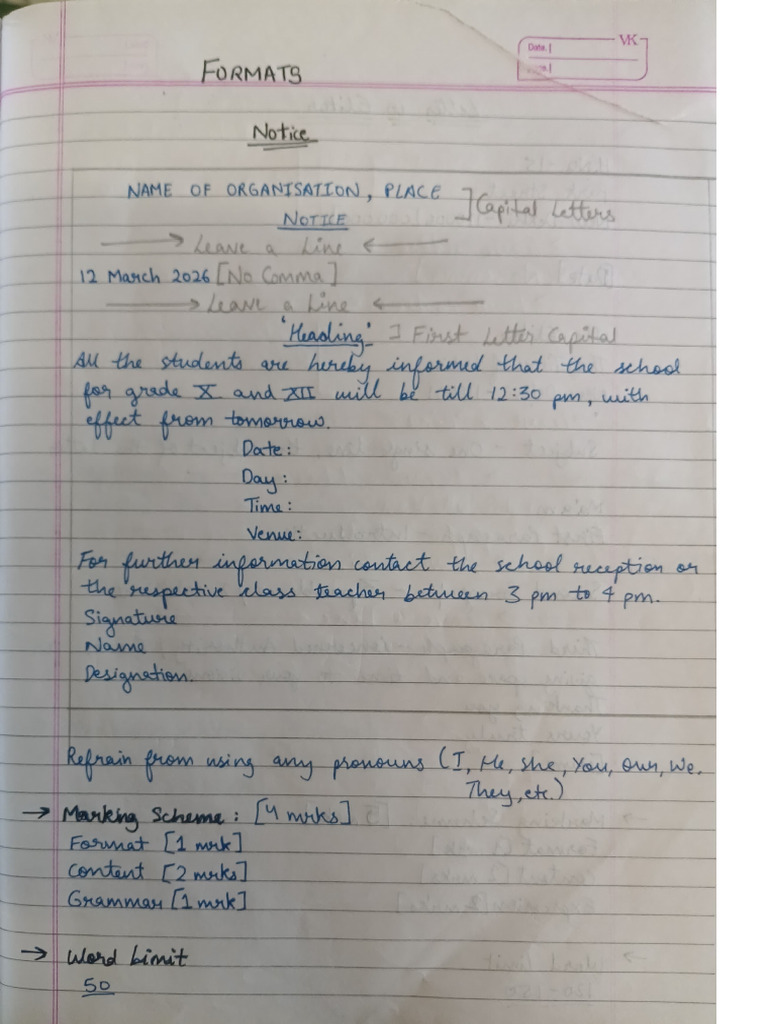 VK
Date.
FORMATS
Notice
NAME OF ORGANISATION, PLACE ] Capital Letters
NOTICE
→ Leave a Line ←
12 March 2026 [No Comma]
→ Leave a Line ←
'Heading' ] First Letter Capital
All the students are hereby informed that the school
for grade X and XII will be till 12:30 pm, with
effect from tomorrow.
Date:
Day:
Time:
Venue:
For further information contact the school reception or
the respective class teacher between 3 pm to 4 pm.
Signature
Name
Designation.
Refrain from using any pronouns (I, He, she, You, Our, We,
They, etc.)
→ Marking Scheme: [4 mrks]
Format [1 mrk]
Content [2 mrks]
Grammar [1 mrk]
→ Word Limit
50